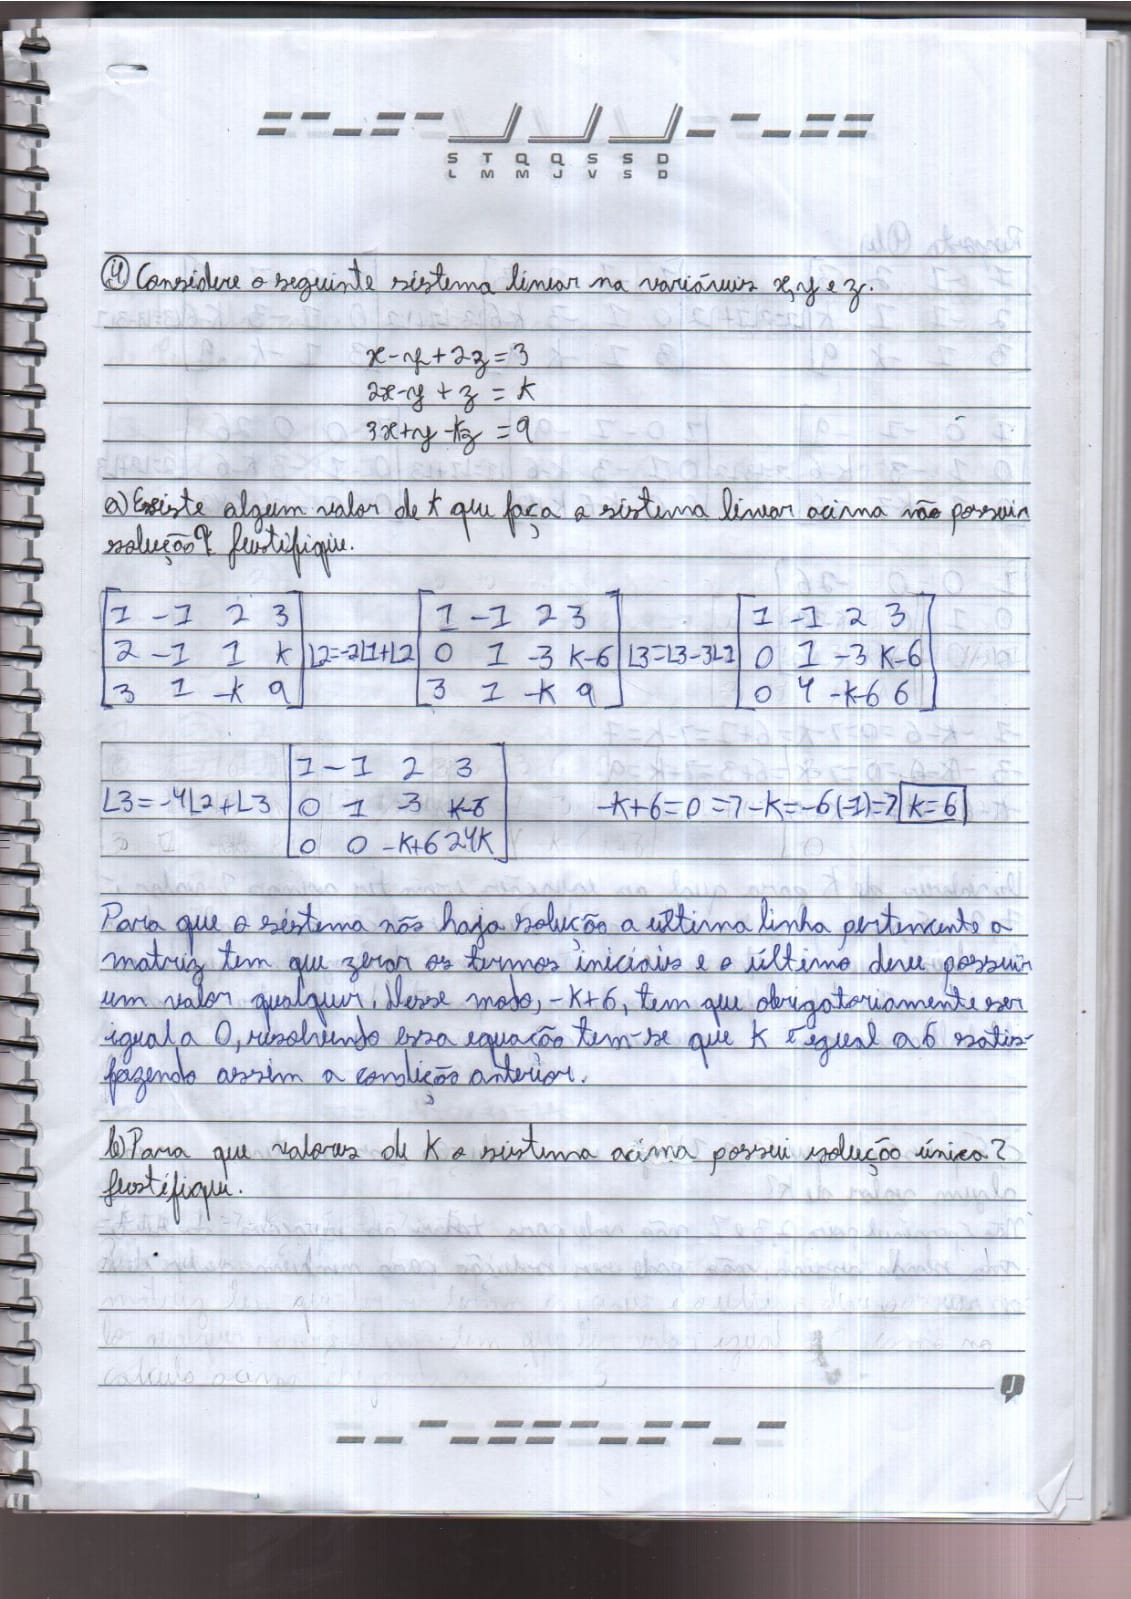 S T Q Q S S D
L M M J V S D
4) Considere o seguinte sistema linear na variáveis x, y e z.
x-y+2z=3
2x-y+z=k
3x+y-kz=9
a) Existe algum valor de k que faça o sistema linear acima não possuir
solução? Justifique.
1 -1 2 3
2 -1 1 k
3 1 -k 9
L2=-2L1+L2
1 -1 2 3
0 1 -3 k-6
3 1 -k 9
L3=L3-3L1
1 -1 2 3
0 1 -3 k-6
0 4 -k-6 6
L3=-4L2+L3
1 -1 2 3
0 1 -3 k-6
0 0 -k+6 24k
-k+6=0=7-k=-6(-1)=7 k=6
Para que o sistema nós haja solução a ultima linha pertencente a
matriz tem que zerar os termos iniciais e o último deve possuir
um valor qualquer. Nesse modo, -k+6, tem que obrigatoriamente ser
igual a 0, resolvendo essa equação tem-se que k é igual a 6 satis-
fazendo assim a condição anterior.
b) Para que valores de k o sistema acima possui solução única?
Justifique.